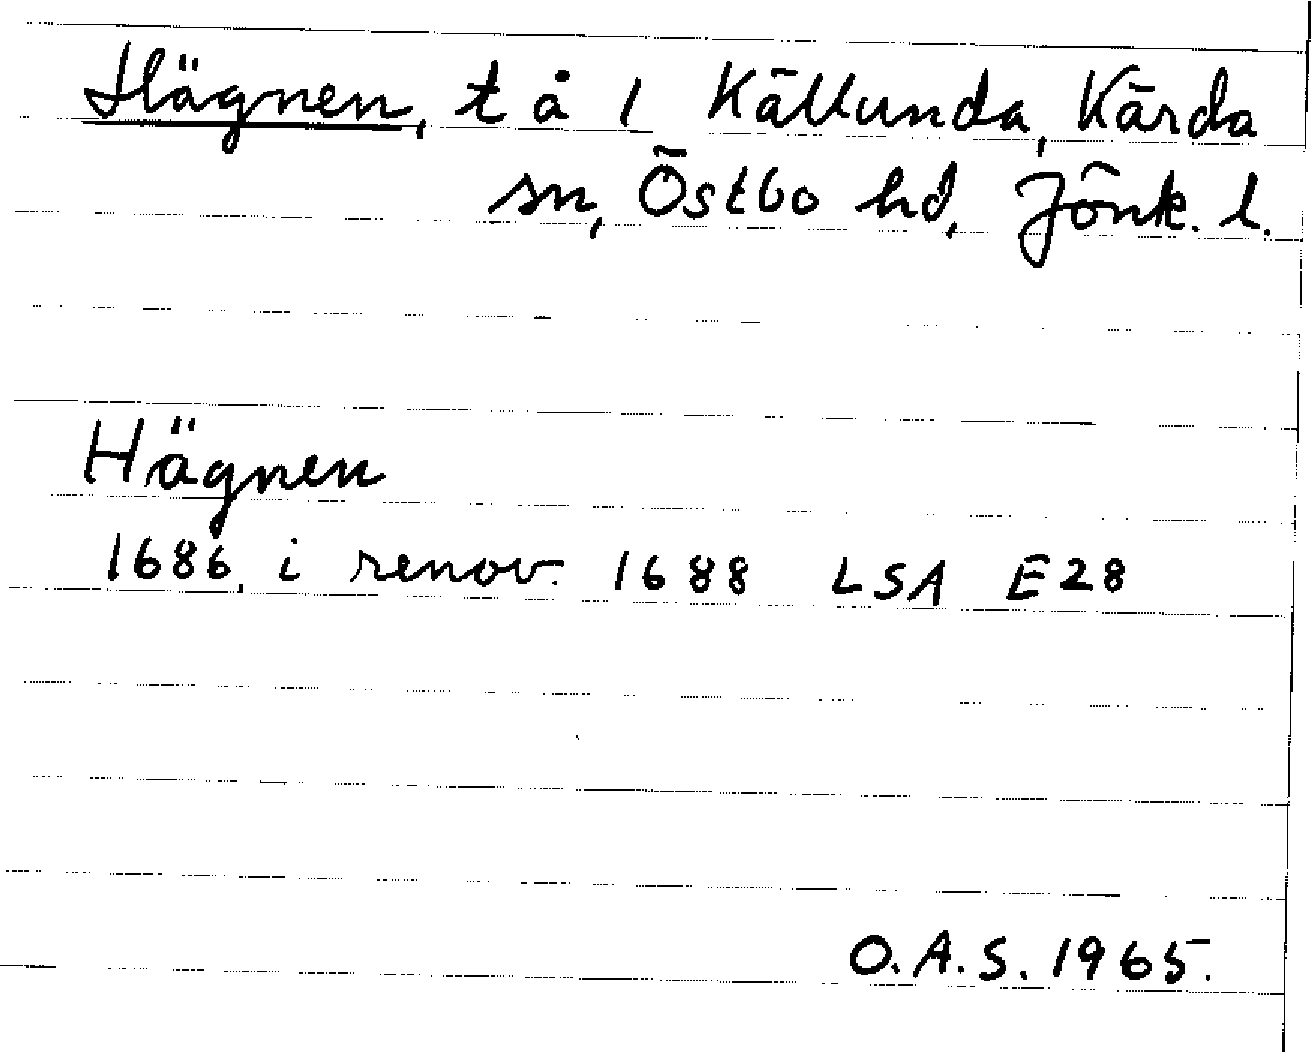 Hägnen, t å 1 Källunda, Kärda
sn, Östbo hd, Jönk. l.
Hägnen
1686, i renov. 1688 LSA E28
O.A.S. 1965.